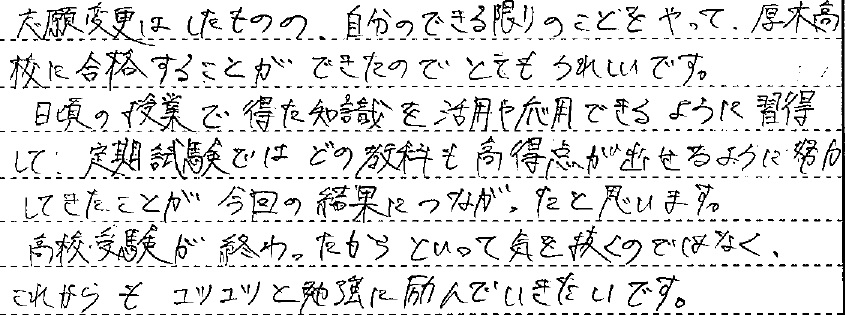 志願変更はしたものの、自分のできる限りのことをやって、厚木高
校に合格することができたのでとてもうれしいです。
日頃の授業で得た知識を活用や応用できるように習得
して、定期試験ではどの教科も高得点が出せるように努力
してきたことが今回の結果につながったと思います。
高校受験が終わったからといって気を抜くのではなく、
これからもコツコツと勉強に励んでいきたいです。